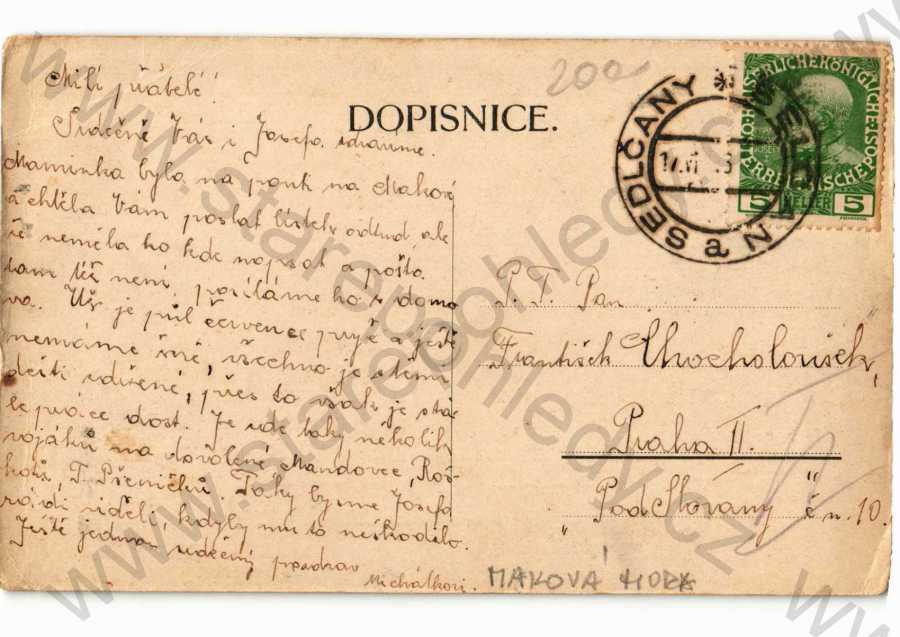 Milí přátelé!
Srdečně Vás i Josefa zdravíme.
Maminka byla na pouti na Makové
a chtěla Vám poslat lístek odtud, ale
že neměla ho kde napsat a pošta
tam též není, posíláme ho z domo
va. Už je půl července pryč a ještě
nemáme žně, všechno je těmi
dešti zdržené, přes to však je stá
le práce dost. Je zde taky několik
vojáků na dovolené Mandovec, Roš
kotů, T. Pšeničků. Taky bysme Josefa
rádi viděli, kdyby mu to neškodilo.
Ještě jednou srdečný pozdrav
Michálkovi.
200
DOPISNICE.
SEDLČANY * SELČAN a
17.VI
KAISERLICHEKÖNIGLICHE POST
ÖSTERREICHISCHE
5 HELLER 5
P. T. Pan
František Chocholoušek,
Praha II.
"Pod Slovany" č n. 10.
MAKOVÁ HORA
www.starepohledy.cz